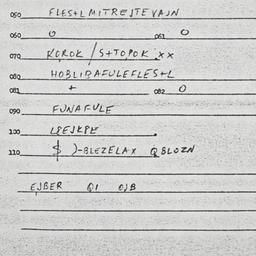 050 FLES+L MITREJTE VAJN
060 O 061 O
070 KOROK / S+TOPOK xx
080 HOBLIRAFULEFLES+L
081 + 082 O
090 FUNAFULE
100 LPEJKPE
110 $ )-BLEZELAX QBLOZN
EJBER QI OJB